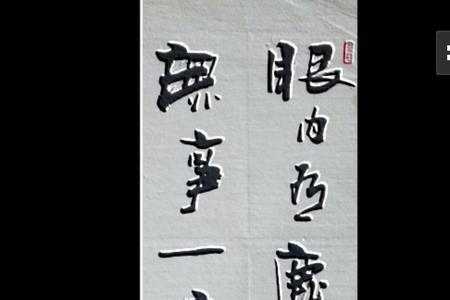 眼内有塵
無事一